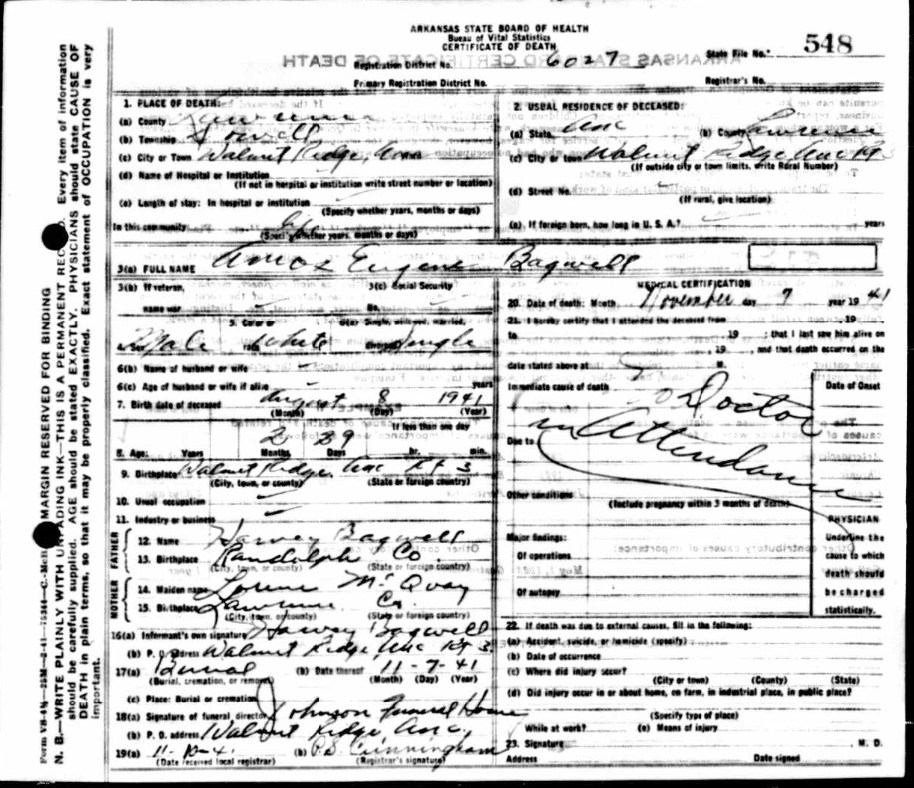 ARKANSAS STATE BOARD OF HEALTH
Bureau of Vital Statistics
CERTIFICATE OF DEATH
Registration District No. 6027 State File No. 548
Primary Registration District No. Registrar's No.
1. PLACE OF DEATH:
(a) County Lawrence
(b) Township
(c) City or Town Walnut Ridge, Ark
(d) Name of Hospital or Institution
(If not in hospital or institution write street number or location)
(e) Length of stay: In hospital or institution
(Specify whether years, months or days)
In this community
(Specify whether years, months or days)
2. USUAL RESIDENCE OF DECEASED:
(a) State Ark (b) County Lawrence
(c) City or town Walnut Ridge Ark
(If outside city or town limits, write Rural Number)
(d) Street No.
(If rural, give location)
(e). If foreign born, how long in U. S. A.? years
3(a) FULL NAME Amos Eugene Bagwell
3(b) If veteran, 3(c) Social Security
name war No.
5. Color or 6(a) Single, widowed, married,
Male White Single
6(b) Name of husband or wife
6(c) Age of husband or wife if alive years
7. Birth date of deceased August 8 1941
(Month) (Day) (Year)
If less than one day
2 29
8. Age: Years Months Days hr. min.
9. Birthplace Walnut Ridge Ark Rt 3
(City, town, or county) (State or foreign country)
10. Usual occupation
11. Industry or business
FATHER
12. Name Harvey Bagwell
13. Birthplace Randolph Co
(City, town, or county) (State or foreign country)
MOTHER
14. Maiden name McQuay
15. Birthplace Lawrence Co.
(City, town, or county) (State or foreign country)
16(a) Informant's own signature Harvey Bagwell
(b) P. O. address Walnut Ridge, Ark Rt 3
17(a) Burial (b) Date thereof 11-7-41
(Burial, cremation, or removal) (Month) (Day) (Year)
(c) Place: Burial or cremation
18(a) Signature of funeral director Johnson Funeral Home
(b) P. O. address Walnut Ridge, Ark.
19(a) (b) P.B. Cunningham
(Date received local registrar) (Registrar's signature)
MEDICAL CERTIFICATION
20. Date of death: Month November day year 1941
21. I hereby certify that I attended the deceased from , 19
to , 19 ; that I last saw him alive on
, 19 , and that death occurred on the
date stated above at M.
Immediate cause of death Date of Onset
No Doctor
Due to in Attendance
Other conditions
(Include pregnancy within 3 months of death)
Major findings:
Of operations
Of autopsy
PHYSICIAN
Underline the
cause to which
death should
be charged
statistically.
22. If death was due to external causes, fill in the following:
(a) Accident, suicide, or homicide (specify)
(b) Date of occurrence
(c) Where did injury occur?
(City or town) (County) (State)
(d) Did injury occur in or about home, on farm, in industrial place, in public place?
(Specify type of place)
While at work? (e) Means of injury
23. Signature M. D.
Address Date signed
MARGIN RESERVED FOR BINDING
N. B.—WRITE PLAINLY WITH UNFADING INK—THIS IS A PERMANENT RECORD. Every item of information
should be carefully supplied. AGE should be stated EXACTLY. PHYSICIANS should state CAUSE OF
DEATH in plain terms, so that it may be properly classified. Exact statement of OCCUPATION is very
important.